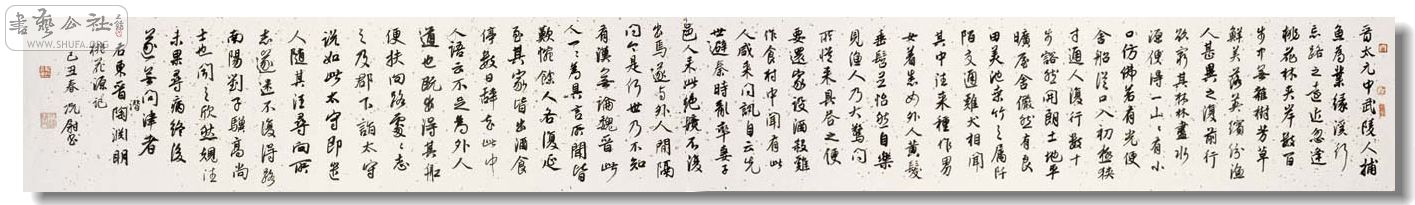 書藝公社
WWW.SHUFA.ORG
晉太元中武陵人捕
魚為業緣溪行
忘路之遠近忽逢
桃花林夾岸數百
步中無雜樹芳草
鮮美落英繽紛漁
人甚異之復前行
欲窮其林林盡水
源便得一山山有小
口仿佛若有光便
舍船從口入初極狹
才通人復行數十
步豁然開朗土地平
曠屋舍儼然有良
田美池桑竹之屬阡
陌交通雞犬相聞
其中往來種作男
女着悉如外人黃髮
垂髫並怡然自樂
見漁人乃大驚問
所從來具答之便
要還家設酒殺雞
作食村中聞有此
人咸來問訊自云先
世避秦時亂率妻子
邑人來此絕境不復
出焉遂與外人間隔
問今是何世乃不知
有漢無論魏晉此
人一一為具言所聞皆
歎惋餘人各復延
至其家皆出酒食
停數日辭去此中
人語云不足為外人
道也既出得其船
便扶向路處處志
之及郡下詣太守
說如此太守即遣
人隨其往尋向所
志遂迷不復得路
南陽劉子驥高尚
士也聞之欣然規往
未果尋病終後
遂無問津者
右東晉陶淵明
潛
桃花源記
己丑春